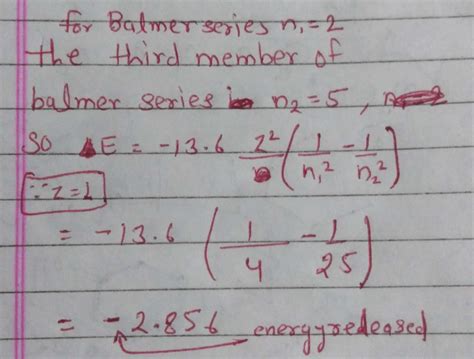 for Balmer series n₁ = 2
the third member of
balmer series n₂ = 5 ,
So ΔE = -13.6 Z² (1/n₁² - 1/n₂²)
∵ z = 1
= -13.6 (1/4 - 1/25)
= - 2.856 energy redeased